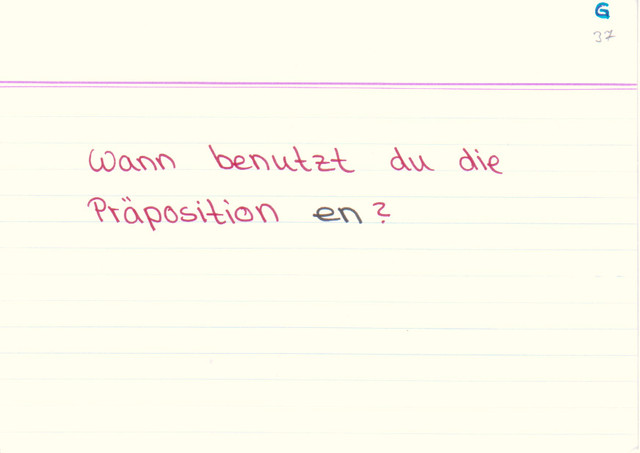 G
37
Wann benutzt du die
Präposition en?